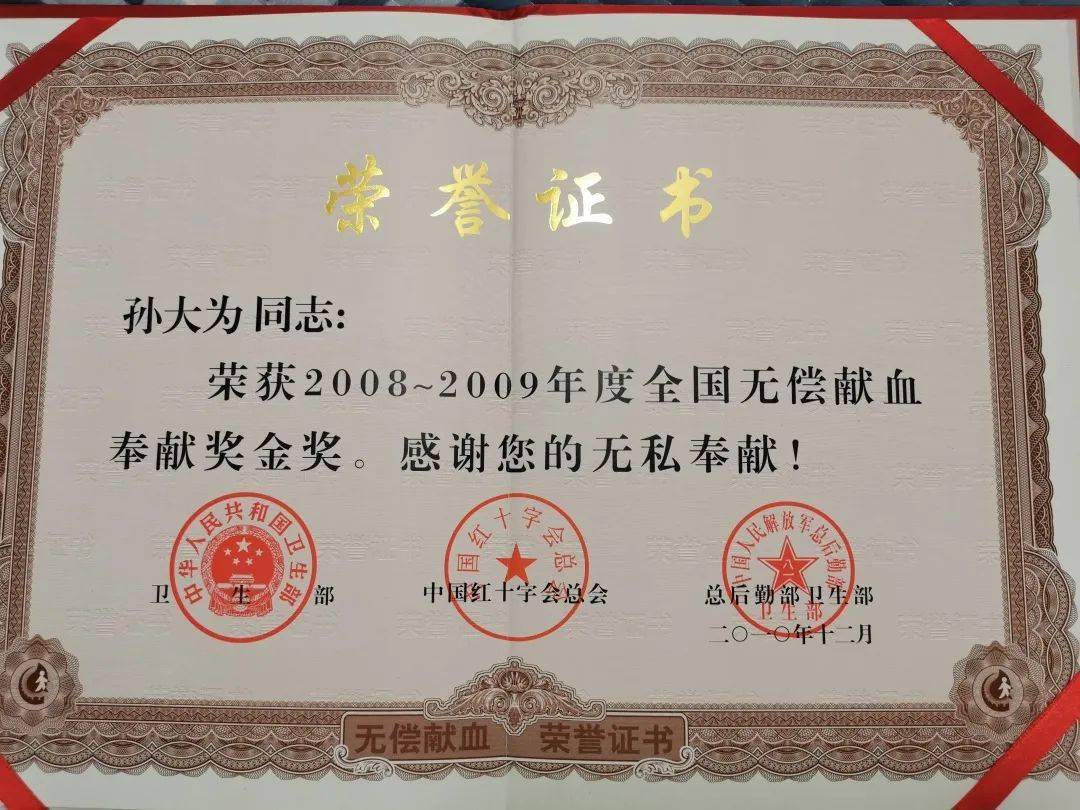 荣誉证书
孙大为 同志:
荣获2008~2009年度全国无偿献血
奉献奖金奖。感谢您的无私奉献!
中华人民共和国卫生部
中国红十字会总会
中国人民解放军总后勤部
八一
卫生部
卫生部
中国红十字会总会
总后勤部卫生部
二〇一〇年十二月
无偿献血 荣誉证书